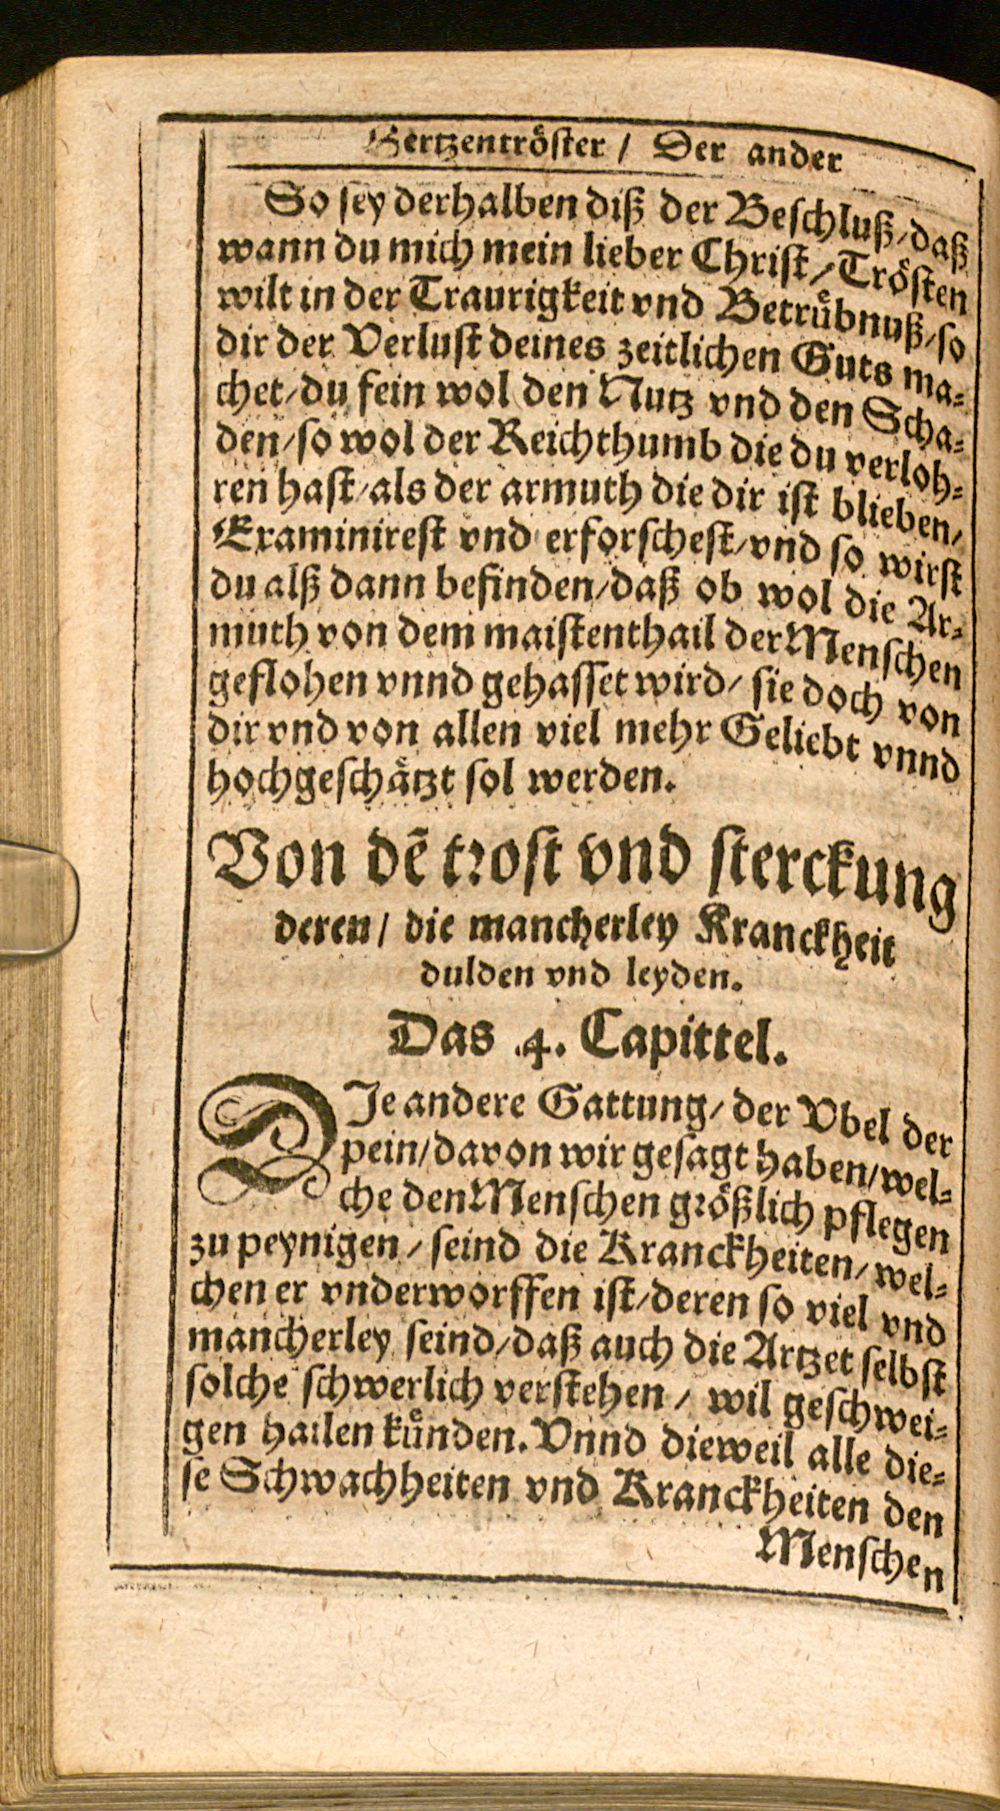 Hertzentröster / Der ander
So sey derhalben diß der Beschluß / daß
wann du mich mein lieber Christ / Trösten
wilt in der Traurigkeit vnd Betrübnuß / so
dir der Verlust deines zeitlichen Guts ma-
chet / du fein wol den Nutz vnd den Scha-
den / so wol der Reichthumb die du verloh-
ren hast / als der armuth die dir ist blieben /
Examinirest vnd erforschest / vnd so wirst
du alß dann befinden / daß ob wol die Ar-
muth von dem maistenthail der Menschen
geflohen vnnd gehasset wird / sie doch von
dir vnd von allen viel mehr Geliebt vnnd
hochgeschätzt sol werden.
Von dē trost vnd sterckung
deren / die mancherley Kranckheit
dulden vnd leyden.
Das 4. Capittel.
DJe andere Gattung / der Vbel der
pein / davon wir gesagt haben / wel-
che den Menschen größlich pflegen
zu peynigen / seind die Kranckheiten / wel-
chen er vnderworffen ist / deren so viel vnd
mancherley seind / daß auch die Artzet selbst
solche schwerlich verstehen / wil geschwei-
gen hailen künden. Vnnd dieweil alle die-
se Schwachheiten vnd Kranckheiten den
Menschen